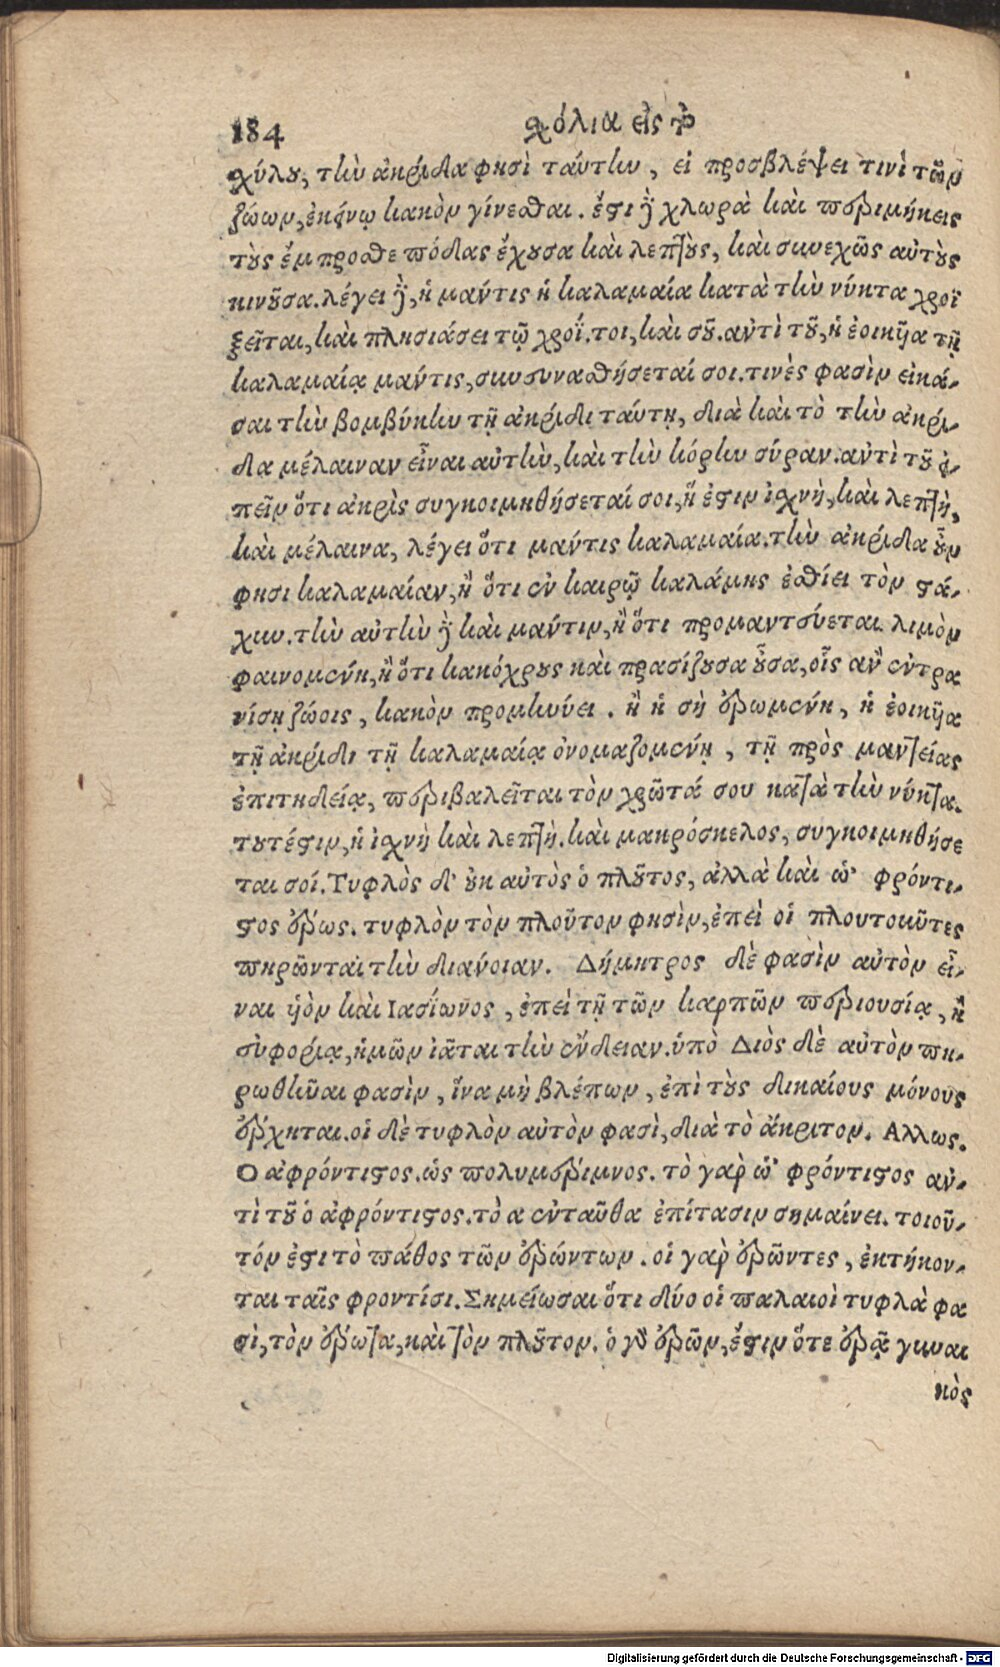 184 σχόλια εἰς τὸ
σχύλου, τὴν ἀκρίδα φησὶ ταύτην, εἰ προσβλέψει τινὶ τῶν
ζώων, ἐκείνῳ κακὸν γίνεσθαι. ἔστι δὲ χλωρὰ καὶ περιμήκεις
τοὺς ἔμπροσθε πόδας ἔχουσα καὶ λεπτοὺς, καὶ συνεχῶς αὐτοὺς
κινοῦσα. λέγει δὲ, ἡ μαντις ἡ καλαμαία κατὰ τὴν νύκτα χροϊ
ξεῖται, καὶ πλησιάσει τῷ χροΐ. τοι, καὶ σοῦ. ἀντὶ τοῦ, ἡ ἐοικυῖα τῇ
καλαμαίᾳ μαντις, συνσυναθήσεταί σοι. τινὲς φασὶν εἰκά-
σαι τὴν βομβύκην τῇ ἀκρίδι ταύτῃ, διὰ καὶ τὸ τὴν ἀκρί-
δα μέλαιναν εἶναι αὐτὴν, καὶ τὴν κόρην σύραν. ἀντὶ τοῦ εἰ-
πεῖν ὅτι ἀκρὶς συγκοιμηθήσεταί σοι, ἥ ἐστιν ἰσχνὴ, καὶ λεπτὴ,
καὶ μέλαινα, λέγει ὅτι μάντις καλαμαία. τὴν ἀκρίδα οὖν
φησι καλαμαίαν, ἢ ὅτι ἐν καιρῷ καλάμης ἐσθίει τὸν στά-
χυν. τὴν αὐτὴν δὲ καὶ μάντιν, ἢ ὅτι προμαντεύεται λιμὸν
φαινομένη, ἢ ὅτι κακόχρους καὶ πρασίζουσα οὖσα, οἷς ἂν ἐντρα
νίσῃ ζώοις, κακὸν προμηνύει. ἢ ἡ σὴ ἐρωμένη, ἡ ἐοικυῖα
τῇ ἀκρίδι τῇ καλαμαίᾳ ὀνομαζομένῃ, τῇ πρὸς μαντείας
ἐπιτηδείᾳ, περιβαλεῖται τὸν χρῶτά σου κατὰ τὴν νύκτα.
τουτέστιν, ἡ ἰσχνὴ καὶ λεπτὴ. καὶ μακρόσκελος, συγκοιμηθήσε
ται σοί. Τυφλὸς δ' οὐκ αὐτὸς ὁ πλοῦτος, ἀλλὰ καὶ ὡ' φρόντι-
στος ἔρως. τυφλὸν τὸν πλοῦτον φησὶν, ἐπεὶ οἱ πλουτοῦντες
πηρῶνται τὴν διάνοιαν. Δήμητρος δέ φασὶν αὐτὸν εἶ-
ναι υἱὸν καὶ Ιασίωνος, ἐπεὶ τῇ τῶν καρπῶν περιουσίᾳ, ἢ
εὐφορίᾳ, ἡμῶν ἰᾶται τὴν ἔνδειαν. ὑπὸ Διὸς δὲ αὐτὸν πη-
ρωθῆναι φασὶν, ἵνα μὴ βλέπων, ἐπὶ τοὺς δικαίους μόνους
ἔρχηται. οἱ δὲ τυφλὸν αὐτὸν φασὶ, διὰ τὸ ἄκριτον. Αλλως.
Ο ἀφρόντιστος. ὡς πολυμέριμνος. τὸ γαρ ὡ' φρόντιστος ἀν-
τὶ τοῦ ὁ ἀφρόντιστος. τὸ α ἐνταῦθα ἐπίτασιν σημαίνει. τοιοῦ-
τόν ἐστι τὸ πάθος τῶν ἐρώντων. οἱ γαρ ἐρῶντες, ἐκτήκον-
ται ταῖς φροντίσι. Σημείωσαι ὅτι δύο οἱ παλαιοὶ τυφλὰ φα
σὶ, τὸν ἔρωτα, καὶ τὸν πλοῦτον. ὁ γὰρ ἐρῶν, ἔστιν ὅτε ἐρᾷ γυναι
κὸς
Digitalisierung gefördert durch die Deutsche Forschungsgemeinschaft - DFG